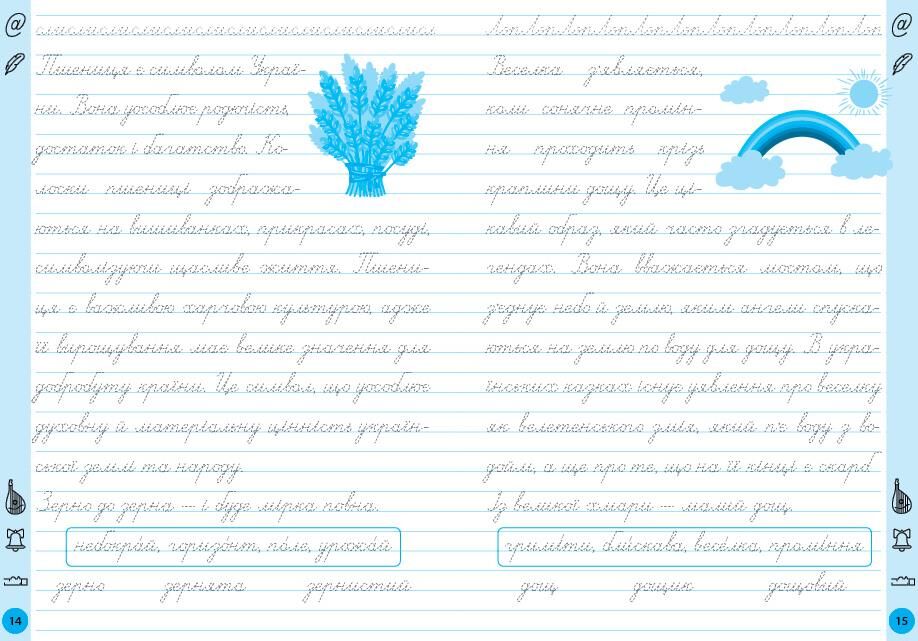 слислислислислислислислислислислисли
ЛопЛопЛопЛопЛопЛопЛопЛопЛопЛоп
Пшениця є символом Украї-
ни. Вона уособлює родючість,
достаток і багатство. Ко-
лоски пшениці зобража-
ються на вишиванках, прикрасах, посуді,
символізуючи щасливе життя. Пшени-
ця є важливою харчовою культурою, адже
її вирощування має велике значення для
добробуту країни. Це символ, що уособлює
духовну й матеріальну цінність україн-
ської землі та народу.
Зерно до зерна — і буде мірка повна.
небокра́й, горизо́нт, по́ле, урожа́й
зерно зернята зернистий
14
Веселка з'являється,
коли сонячне промін-
ня проходить крізь
краплини дощу. Це ці-
кавий образ, який часто згадується в ле-
гендах. Вона вважається мостом, що
з'єднує небо й землю, яким ангели спуска-
ються на землю по воду для дощу. В укра-
їнських казках існує уявлення про веселку
як велетенського змія, який п'є воду з во-
дойм, а ще про те, що на її кінці є скарб
Із великої хмари — малий дощ.
гримі́ти, бли́скавка, весе́лка, промі́ння
дощ дощик дощовий
15